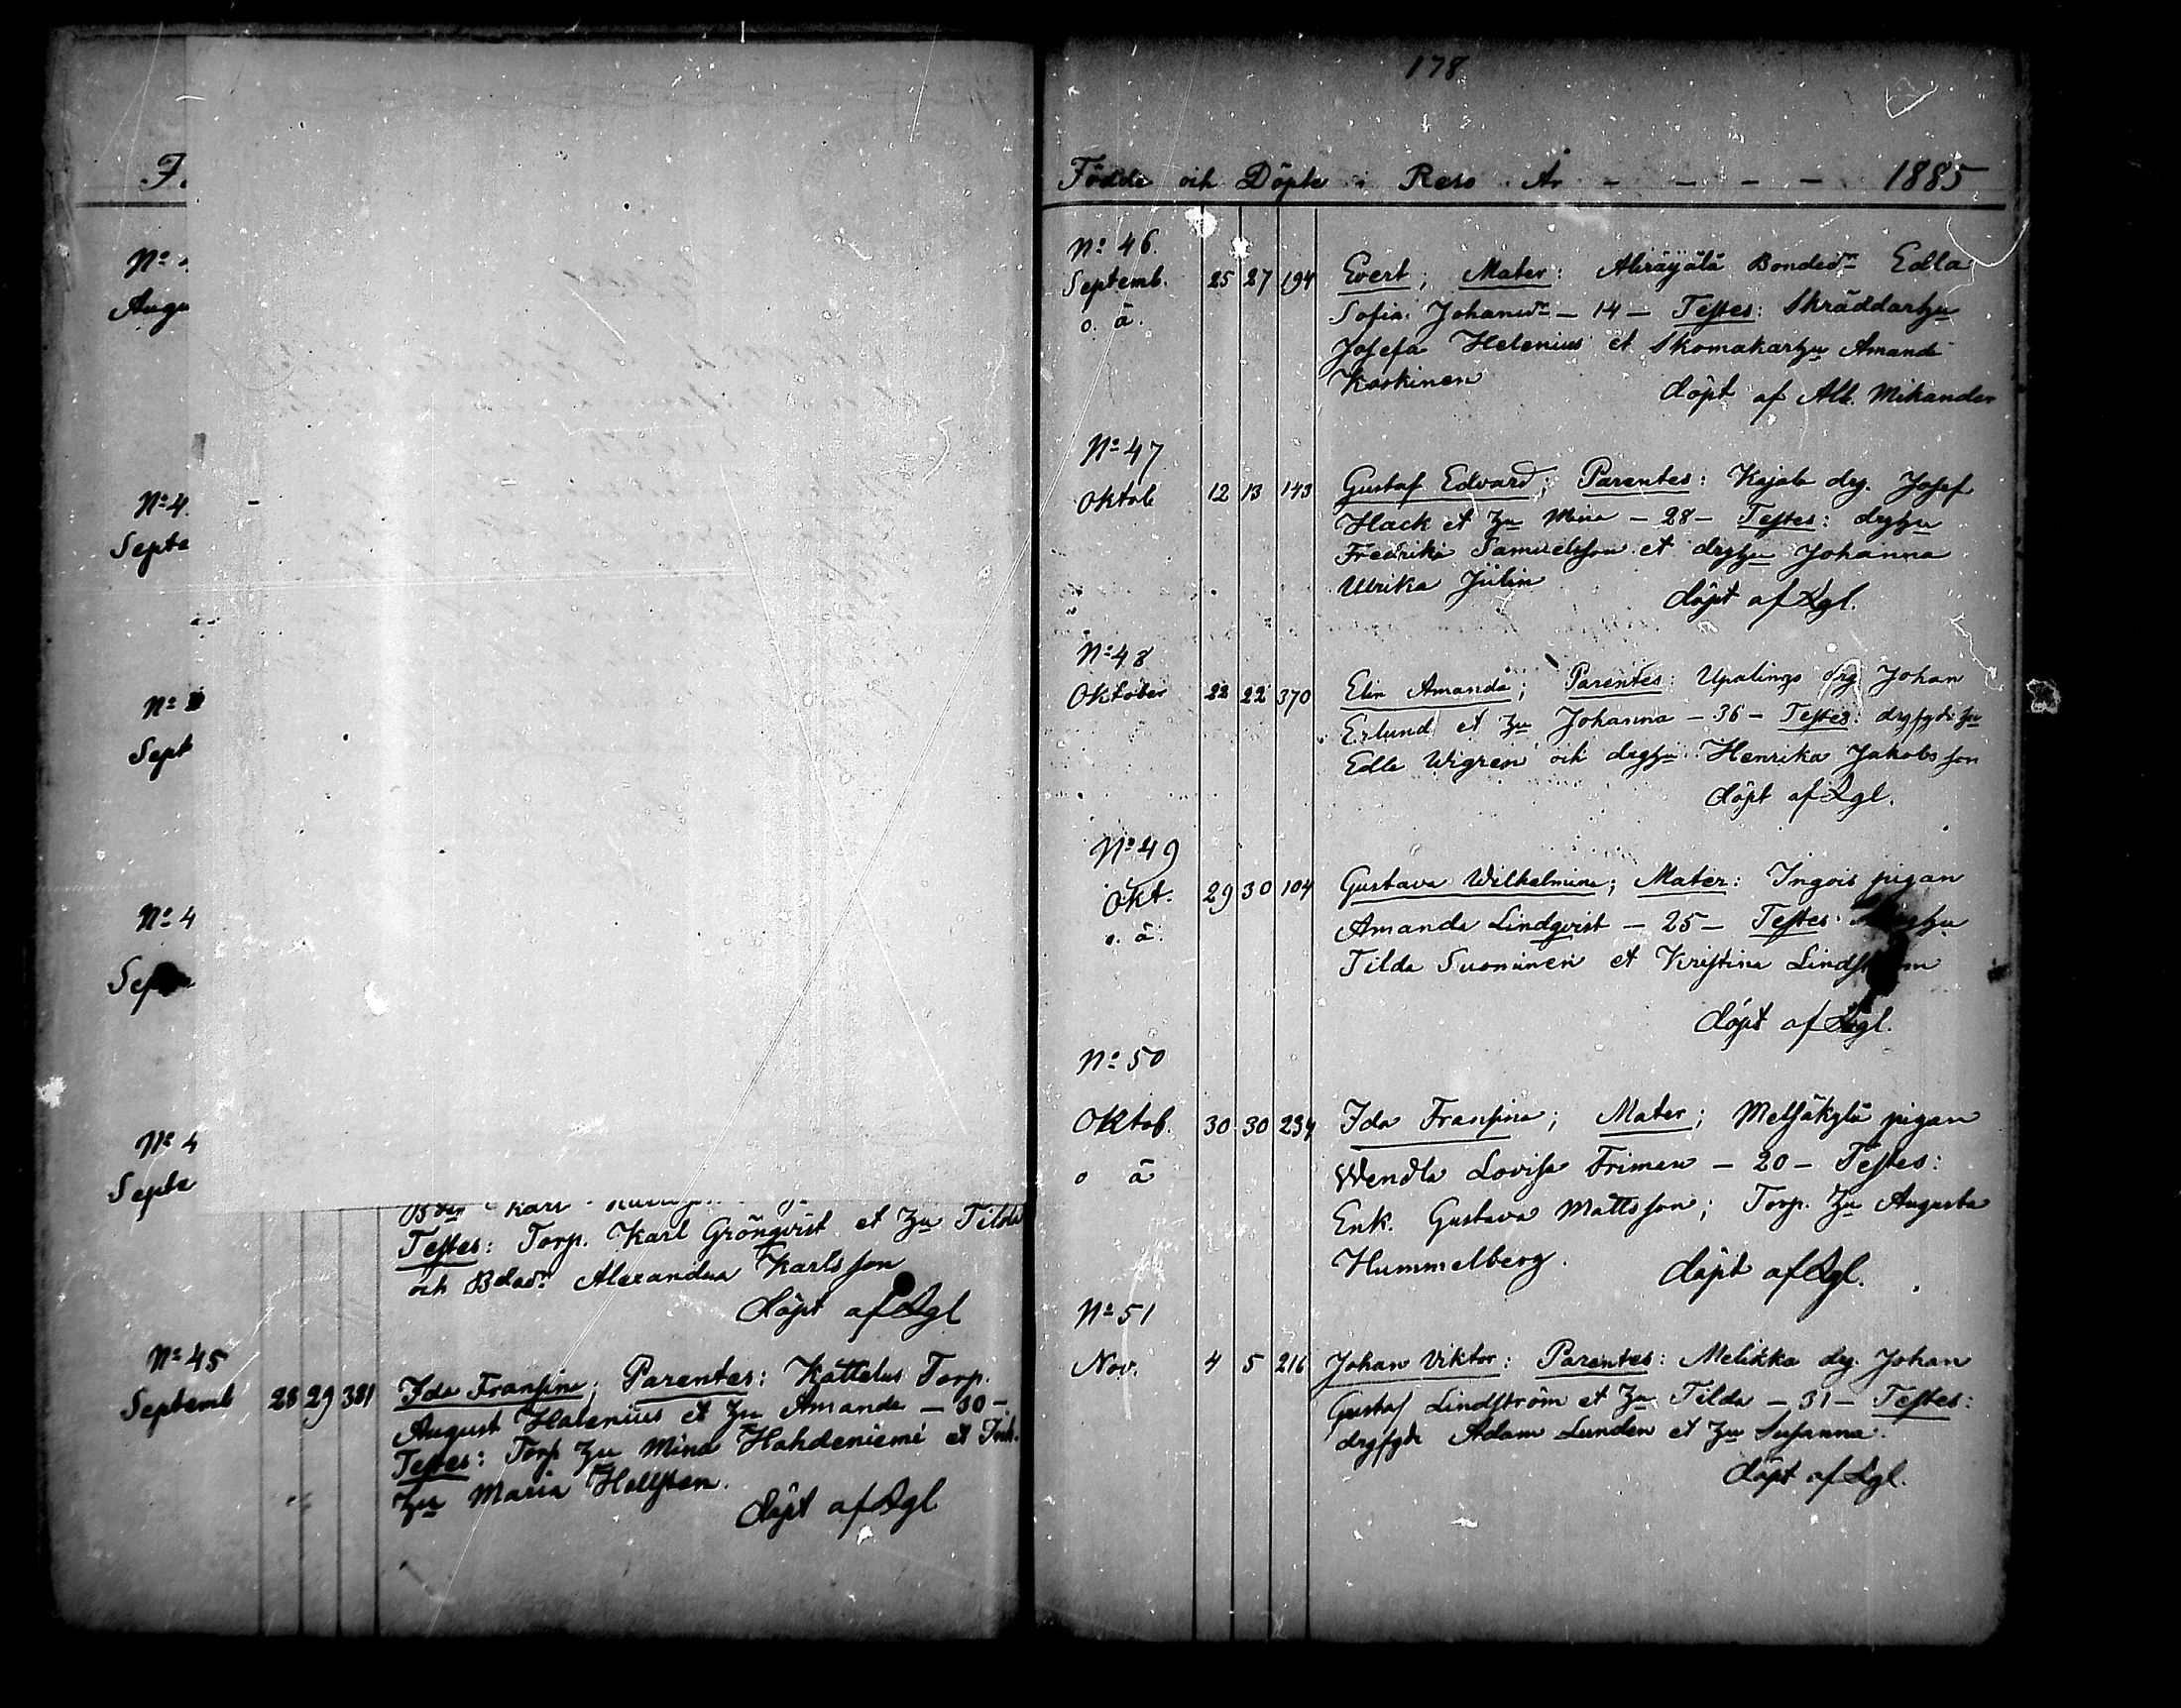 F.
Augu
Nº 4
Septe
Nº
Sept
Nº 4
Nº 4
Septe
Testes: Torp. Karl Grönqvist et hu Tilda
och Bdadr Alexandra Karlsson
döpt af Lgl
Nº 45
Septemb 28 29 381 Ida Fransina; Parentes: Kattelus Torp.
August Halenius et hu Amanda – 30 –
Testes: Torp hu Mina Hahdeniemi et Inh.
hu Maria Hellsten.
döpt af Lgl
178
Födde och Döpte i Reso År – – – – 1885
Nº 46.
Septemb. 25 27 194 Evert; Mater: Bondedr Edla
o. ä. Sofia Johansdr – 14 – Testes: Skräddarhu
Josefa Helenius et Skomakarhu Amanda
Koskinen döpt af Alb. Mikander
Nº 47
Oktob 12 13 143 Gustaf Edvard; Parentes: Kajala drg. Josef
Hack et hu Mina – 28 – Testes: drghu
Fredrika Samuelsson et drghu Johanna
Ulrika Julin döpt af Lgl.
Nº 48
Oktober 22 22 370 Elin Amanda; Parentes: Upalingo drg Johan
Erlund et hu Johanna – 36 – Testes: hu
Edla Wigren och drghu Henrika Jakobsson
döpt af Lgl.
Nº 49
Okt. 29 30 104 Gustava Wilhelmina; Mater: Ingois pigan
o. ä. Amanda Lindqvist – 25 – Testes:
Tilda Suominen et Kristina
döpt af Lgl.
Nº 50
Oktob. 30 30 234 Ida Fransina; Mater; Metsäkylä pigan
o ä Wendla Lovisa Friman – 20 – Testes:
Enk. Gustava Mattsson; Torp. hu Augusta
Hummelberg. döpt af Lgl.
Nº 51
Nov. 4 5 216 Johan Viktor: Parentes: Melikka drg. Johan
Gustaf Lindström et hu Tilda – 31 – Testes:
Adam Lunden et hu Susanna.
döpt af Lgl.